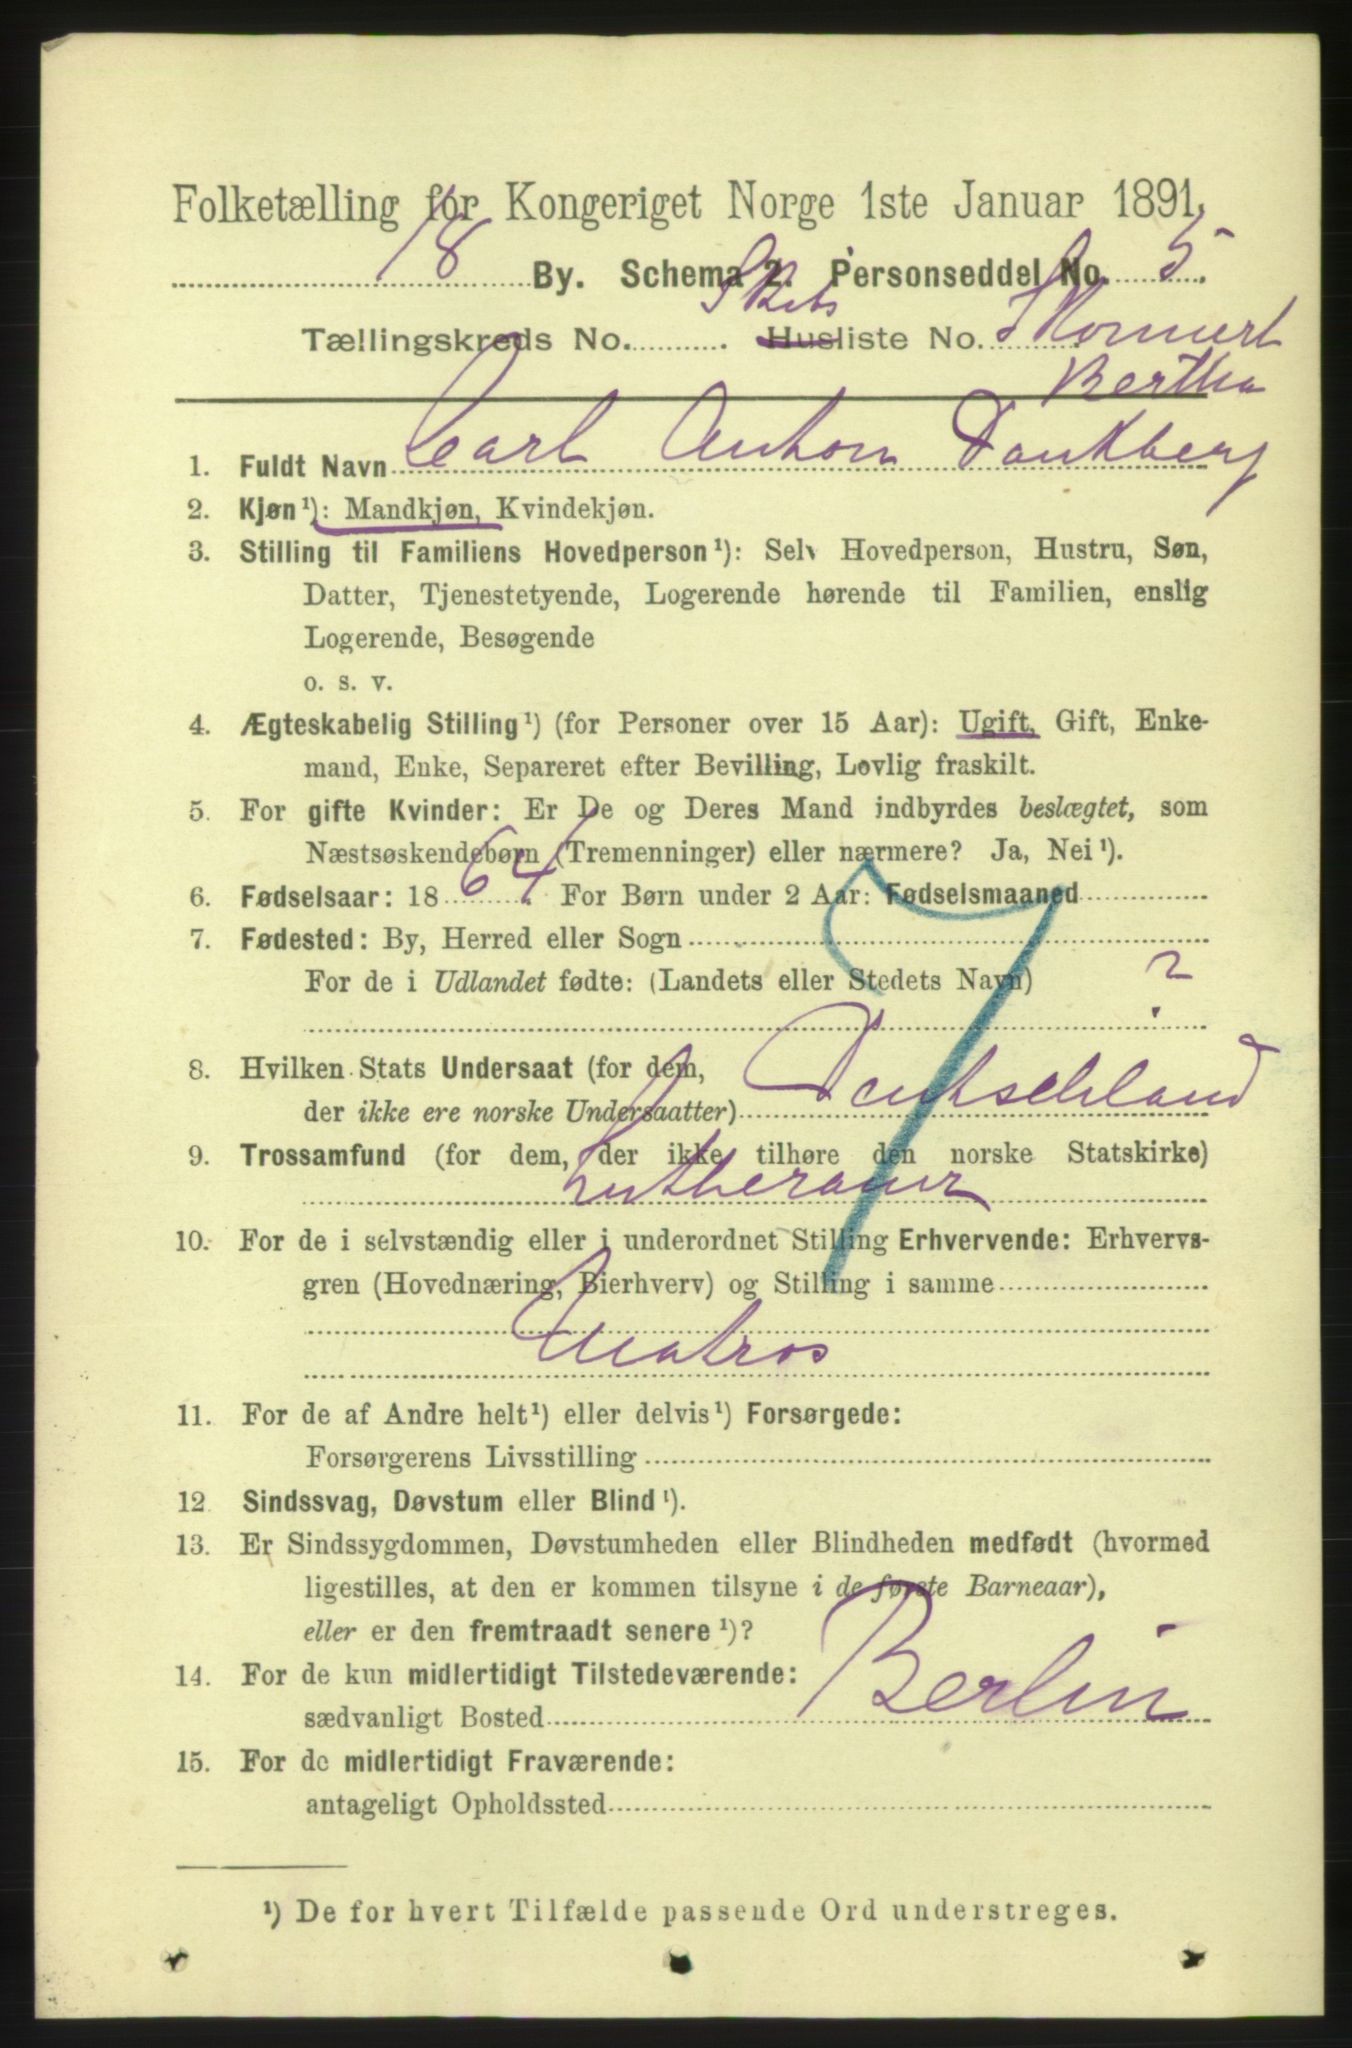 Folketælling for Kongeriget Norge 1ste Januar 1891.
18 By. Schema 2. Personseddel No. 5.
Tællingskreds No. . Skibs Husliste No.
Bertha
1. Fuldt Navn Carl Anton Dankberg
2. Kjøn¹): Mandkjøn, Kvindekjøn.
3. Stilling til Familiens Hovedperson¹): Selv Hovedperson, Hustru, Søn,
Datter, Tjenestetyende, Logerende hørende til Familien, enslig
Logerende, Besøgende
o. s. v.
4. Ægteskabelig Stilling¹) (for Personer over 15 Aar): Ugift, Gift, Enke-
mand, Enke, Separeret efter Bevilling, Lovlig fraskilt.
5. For gifte Kvinder: Er De og Deres Mand indbyrdes beslægtet, som
Næstsøskendebørn (Tremenninger) eller nærmere? Ja, Nei¹).
6. Fødselsaar: 18 64. For Børn under 2 Aar: Fødselsmaaned
7. Fødested: By, Herred eller Sogn
For de i Udlandet fødte: (Landets eller Stedets Navn) ?
7
8. Hvilken Stats Undersaat (for dem,
der ikke ere norske Undersaatter) Deutschland
9. Trossamfund (for dem, der ikke tilhøre den norske Statskirke)
Lutheraner
10. For de i selvstændig eller i underordnet Stilling Erhvervende: Erhvervs-
gren (Hovednæring, Bierhverv) og Stilling i samme
Matros
11. For de af Andre helt¹) eller delvis¹) Forsørgede:
Forsørgerens Livsstilling
12 Sindssvag, Døvstum eller Blind¹).
13. Er Sindssygdommen, Døvstumheden eller Blindheden medfødt (hvormed
ligestilles, at den er kommen tilsyne i de første Barneaar),
eller er den fremtraadt senere¹)?
14. For de kun midlertidigt Tilstedeværende:
sædvanligt Bosted Berlin
15. For de midlertidigt Fraværende:
antageligt Opholdssted
¹) De for hvert Tilfælde passende Ord understreges.